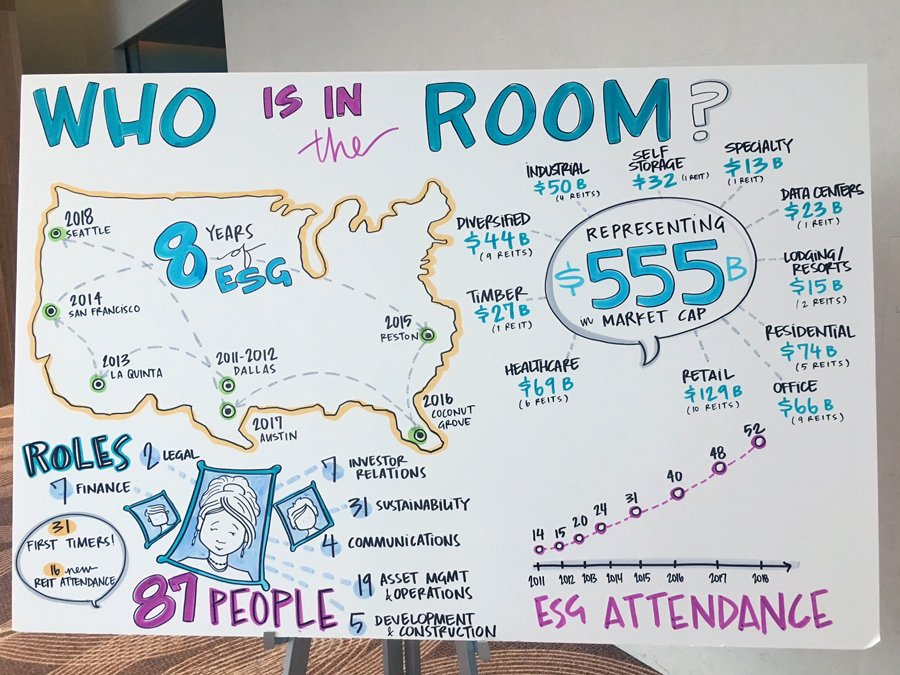 WHO IS IN the ROOM?
2018
SEATTLE
8 YEARS of ESG
2014
SAN FRANCISCO
2013
LA QUINTA
2011-2012
DALLAS
2017
AUSTIN
2015
RESTON
2016
COCONUT
GROVE
REPRESENTING
$555B
in MARKET CAP
INDUSTRIAL
$50 B
(4 REITS)
SELF
STORAGE
$32 (1 REIT)
SPECIALTY
$13 B
(1 REIT)
DATA CENTERS
$23 B
(1 REIT)
LODGING/
RESORTS
$15 B
(2 REITS)
RESIDENTIAL
$74 B
(5 REITS)
OFFICE
$66 B
(9 REITS)
RETAIL
$129 B
(10 REITS)
HEALTHCARE
$69 B
(6 REITS)
TIMBER
$27 B
(1 REIT)
DIVERSIFIED
$44 B
(9 REITS)
ROLES
2 LEGAL
7 FINANCE
7 INVESTOR
RELATIONS
31 SUSTAINABILITY
4 COMMUNICATIONS
19 ASSET MGMT
& OPERATIONS
5 DEVELOPMENT
& CONSTRUCTION
31
FIRST TIMERS!
16 new
REIT ATTENDANCE
87 PEOPLE
14 15 20 24 31 40 48 52
2011 2012 2013 2014 2015 2016 2017 2018
ESG ATTENDANCE